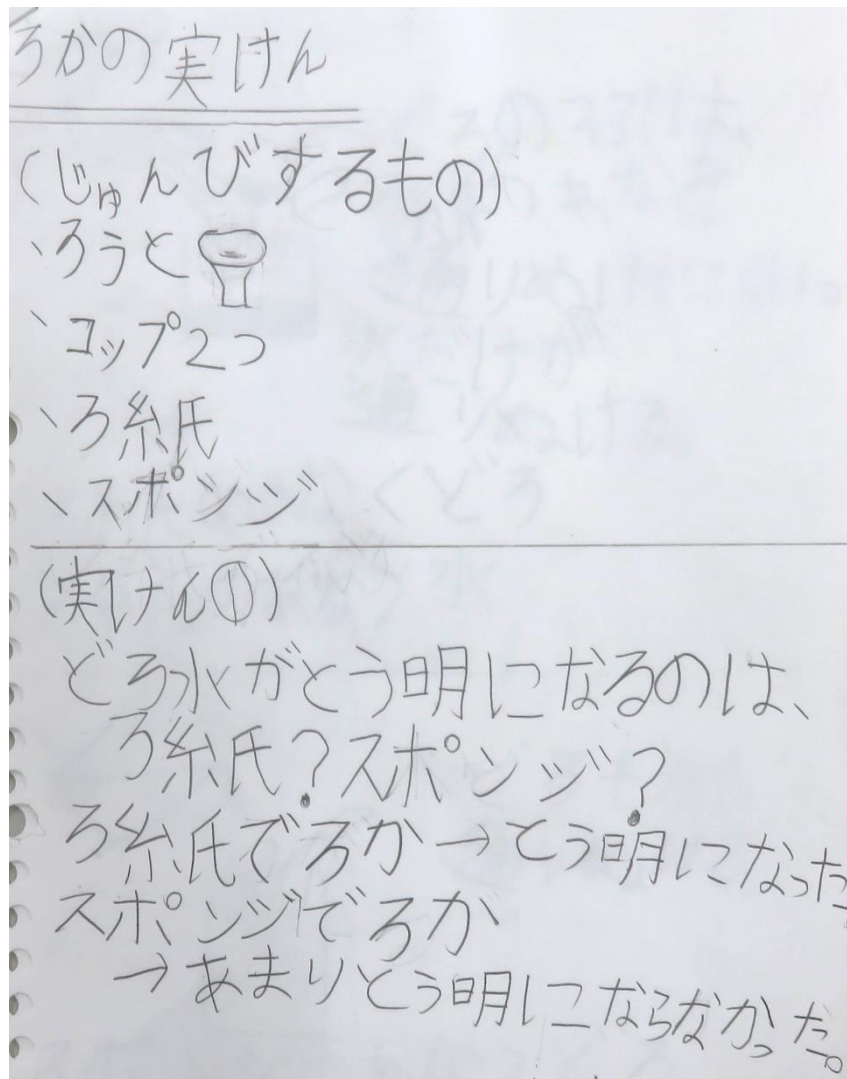 ろかの実けん
(じゅんびするもの)
、ろうと
、コップ2つ
、ろ紙
、スポンジ
(実けん①)
どろ水がとう明になるのは、
ろ紙?スポンジ?
ろ紙でろか→とう明になった。
スポンジでろか
→あまりとう明にならなかった。